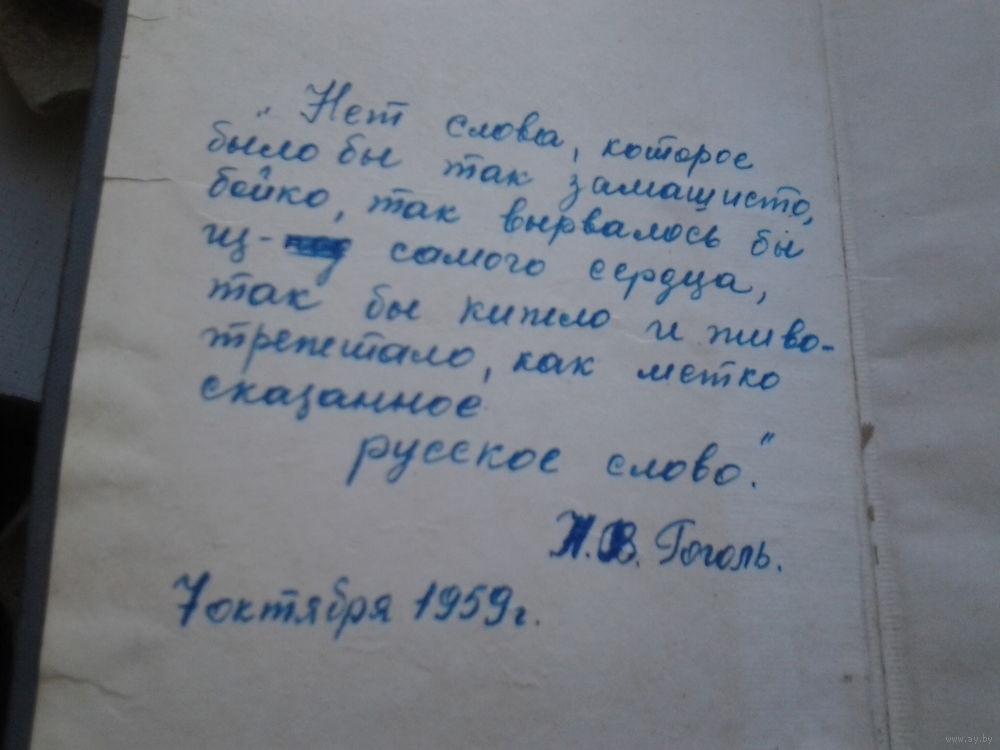 „Нет слова, которое
было бы так замашисто,
бойко, так вырвалось бы
из- самого сердца,
так бы кипело и живо-
трепетало, как метко
сказанное
русское слово."
Н.В. Гоголь.
7 октября 1959 г.
www.ay.by